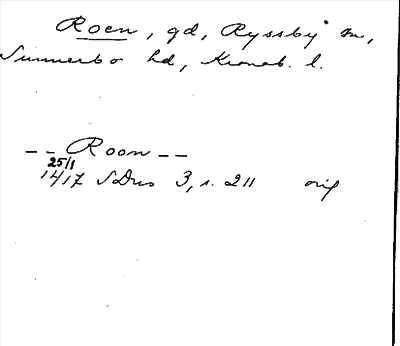 Roen, gd, Ryssby sn,
Sunnerbo hd, Kronob. l.
-- Roon --
25/1
1417 SDns 3, s. 211 orig